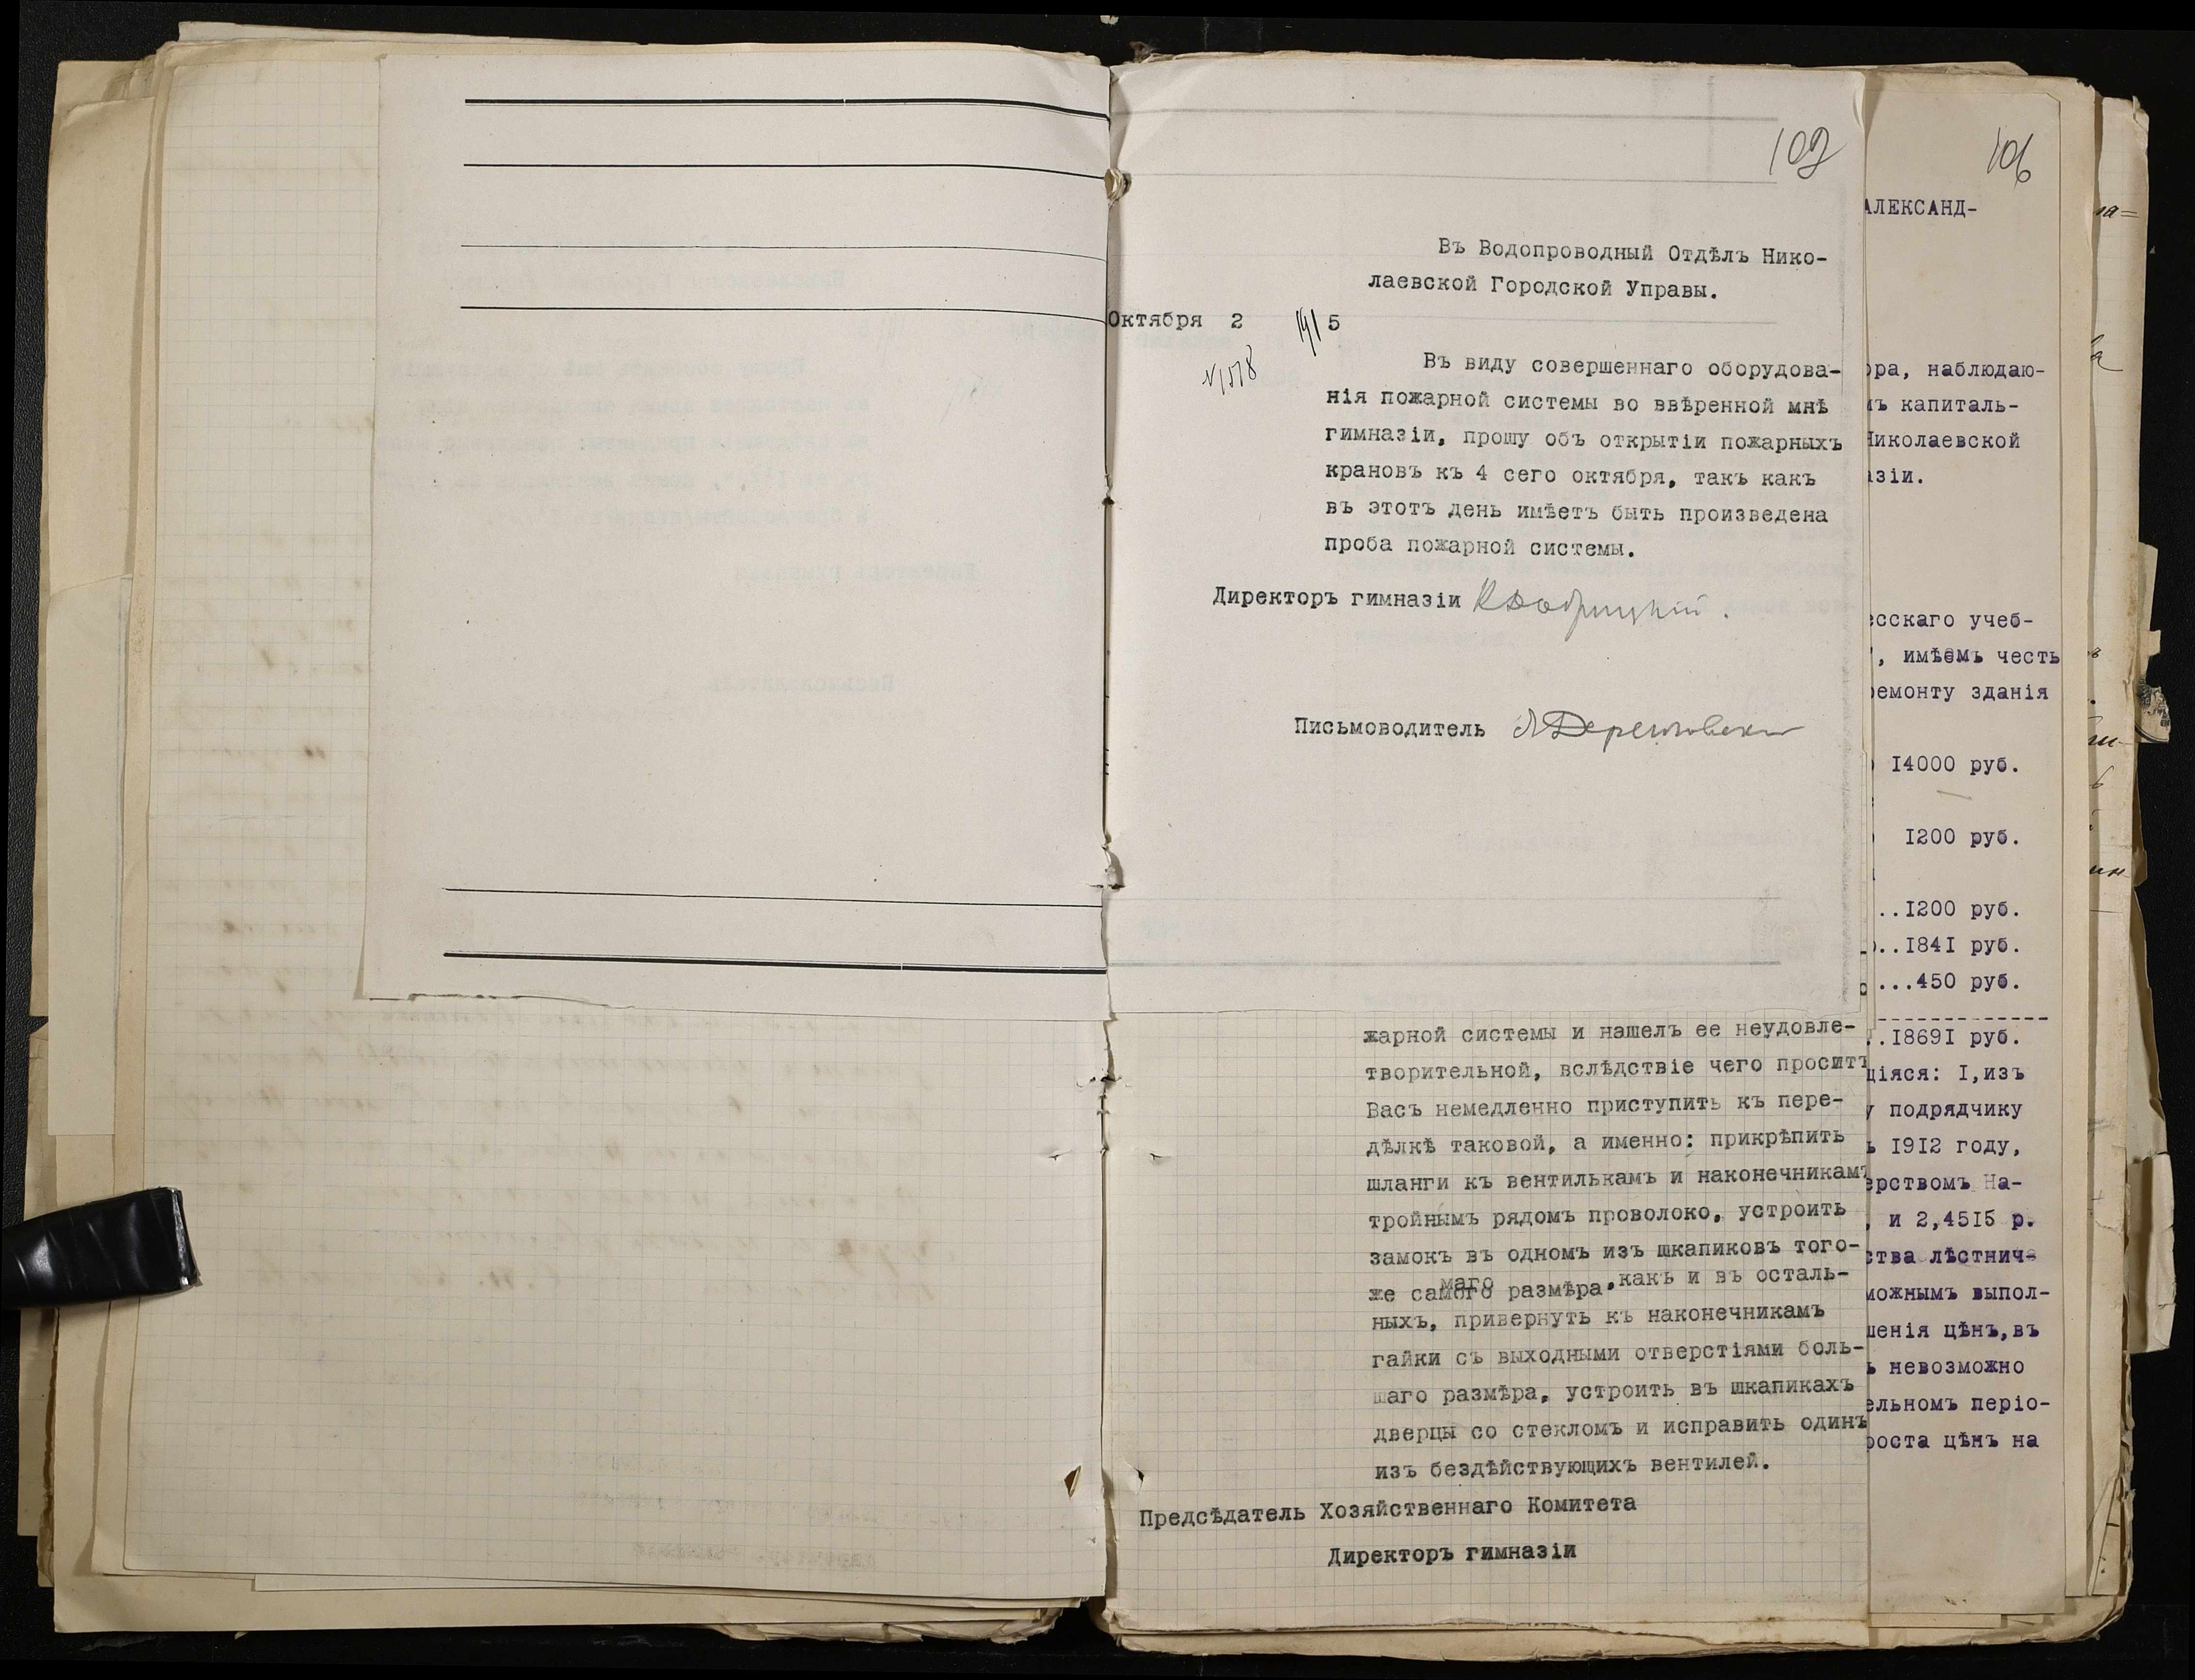 102
Въ Водопроводный Отдѣлъ Нико-
лаевской Городской Управы.
Октября 2 1915
№1578
Въ виду совершеннаго оборудова-
нія пожарной системы во ввѣренной мнѣ
гимназіи, прошу объ открытіи пожарныхъ
крановъ къ 4 сего октября, такъ какъ
въ этотъ день имѣетъ быть произведена
проба пожарной системы.
Директоръ гимназіи
Письмоводитель
жарной системы и нашелъ ее неудовле-
творительной, вслѣдствіе чего проситъ
Васъ немедленно приступить къ пере-
дѣлкѣ таковой, а именно: прикрѣпить
шланги къ вентилькамъ и наконечникамъ
тройнымъ рядомъ проволоко, устроить
замокъ въ одномъ изъ шкапиковъ того-
маго
же самого размѣра, какъ и въ осталь-
ныхъ, привернуть къ наконечникамъ
гайки съ выходными отверстіями боль-
шаго размѣра, устроить въ шкапикахъ
дверцы со стекломъ и исправить одинъ
изъ бездѣйствующихъ вентилей.
Предсѣдатель Хозяйственнаго Комитета
Директоръ гимназіи
106
АЛЕКСАНД-
ора, наблюдаю-
мъ капиталь-
Николаевской
азіи.
есскаго учеб-
, имѣемъ честь
ремонту зданія
14000 руб.
1200 руб.
..1200 руб.
..1841 руб.
...450 руб.
..18691 руб.
щіяся: I,изъ
у подрядчику
ъ 1912 году,
ерствомъ На-
, и 2,4515 р.
ства лѣстнич-
можнымъ выпол-
шенія цѣнъ,въ
ь невозможно
ельномъ періо-
роста цѣнъ на